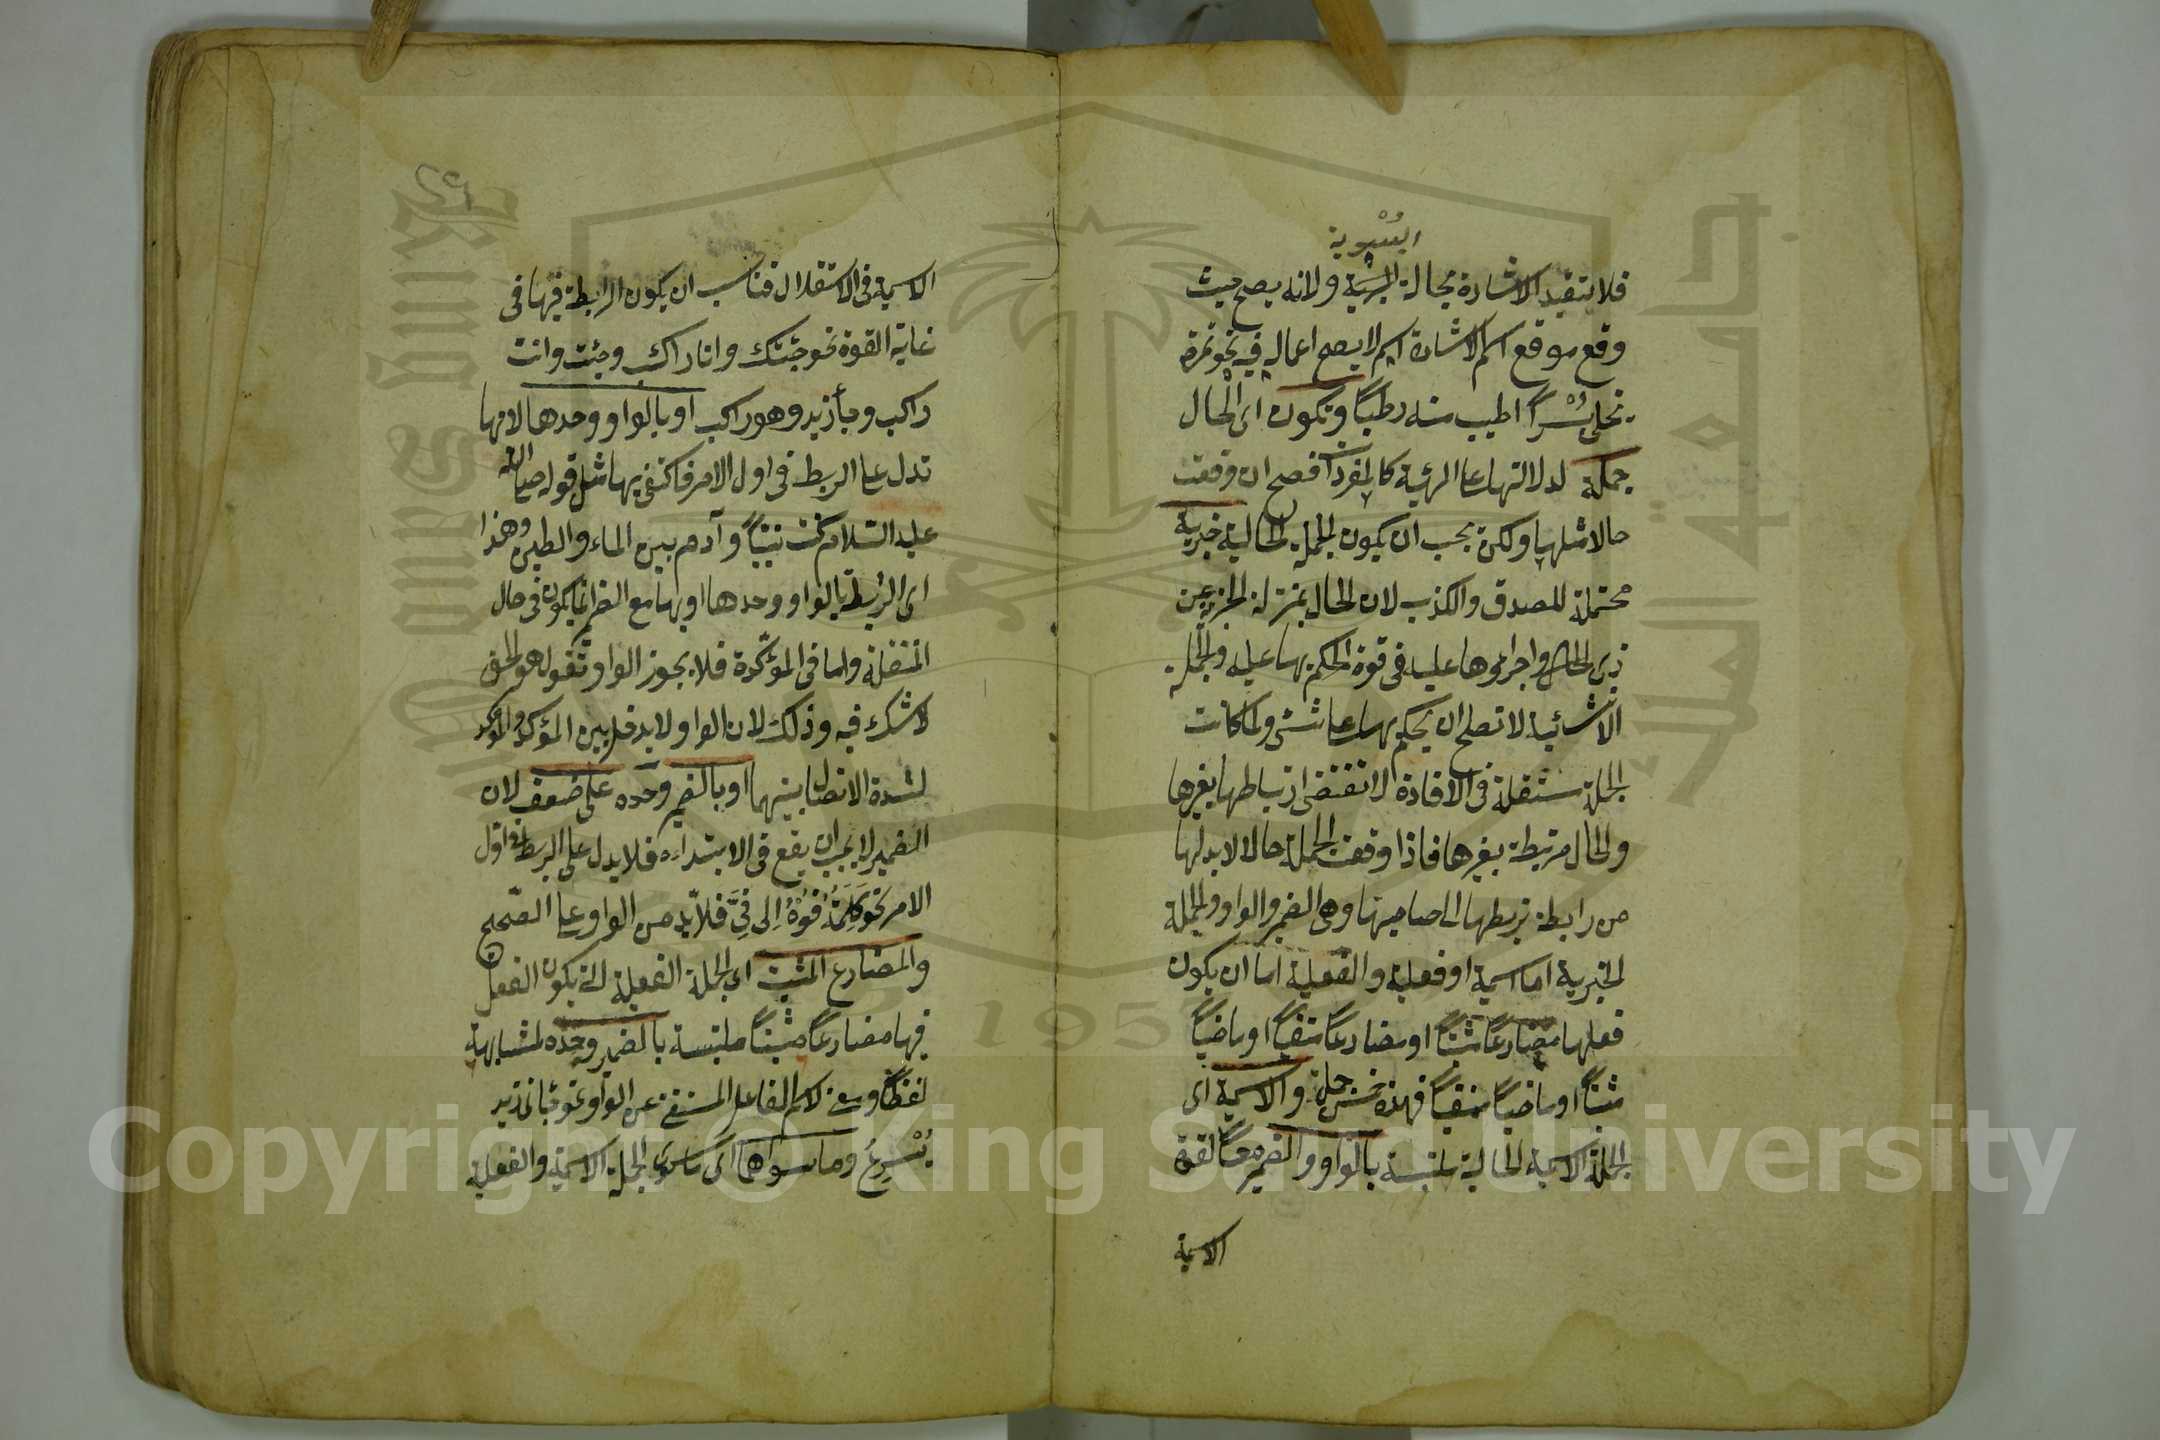 البُسْرية
فلا يتقيد الاشارة بحالة البسرية ولانه يصح حيث
وقع موقع اسم الاشارة اسم لا يصح اعماله فيه نحو تمرة
نخلى بُسْراً اطيب منه رطباً وتكون اى الحال
جملة لدلالتها على الهيئة كالمفردات فصح ان وقعت
حالا مثلها ولكن يجب ان يكون الجملة الحالية خبرية
محتملة للصدق والكذب لان الحال بمنزلة الخبر عن
ذى الحال واجراءها عليه فى قوة الحكم بها عليه والجملة
الانشائية لا تصلح ان يحكم بها على شئ ولما كانت
الجملة مستقلة فى الافادة لا تقتضى ارتباطها بغيرها
والحال مرتبطة بغيرها فاذا وقعت الجملة حالا لا بد لها
من رابطة تربطها الى صاحبها وهى الضمير والواو والجملة
الخبرية اما اسمية او فعلية والفعلية اما ان يكون
فعلها مضارعاً مثبتاً او مضارعاً منفياً او ماضياً
مثبتاً او ماضياً منفياً فهذه خمس جمل والاسمية اى
الجملة الاسمية الحالية ملتبسة بالواو والضمير معاً لقوة
الاسمية
الاسمية فى الاستقلال فناسب ان يكون الرابطة فيها فى
غاية القوة نحو جئتك وانا راكب وجئت وانت
راكب وجأ زيد وهو راكب او بالواو وحدها لانها
تدل على الربط فى اول الامر فاكتفى بها مثل قوله صلى الله
عليه السلام كنت نبيّاً وآدم بين الماء والطين وهذا
اى الربط بالواو وحدها او بها مع الضمير انما يكون فى حال
المنتقلة واما فى المؤكّدة فلا يجوز الواو تقول هو الحق
لا شك فيه وذلك لان الواو لا يدخل بين المؤكد والمؤكد
لشدة الاتصال بينهما او بالضمير وحده على ضعف لان
الضمير لا يجب ان يقع فى الابتداء فلا يدل على الربط فى اول
الامر نحو كلمتُه فُوْهُ إلى فِيَّ فلا بدّ من الواو على الصّحيح
والمضارع المثبت اى الجملة الفعلية التى يكون الفعل
فيها مضارعاً مثبتاً ملتبسة بالضمير وحده لمشابهة
لفظاً ومعنى لاسم الفاعل المستغنى عن الواو نحو جاءنى زيد
يُسْرِعُ وما سواهما اى ما سوى الجملة الاسمية والفعلية